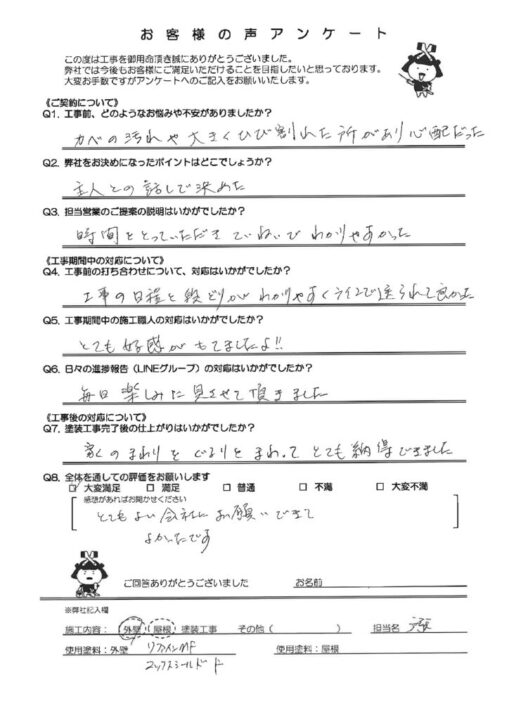 お客様の声アンケート
この度は工事を御用命頂き誠にありがとうございました。
弊社では今後もお客様にご満足いただけることを目指したいと思っております。
大変お手数ですがアンケートへのご記入をお願いいたします。
《ご契約について》
Q1. 工事前、どのようなお悩みや不安がありましたか?
カベの汚れや大きくひび割れた所があり心配だった
Q2. 弊社をお決めになったポイントはどこでしょうか?
主人との話しで決めた
Q3. 担当営業のご提案の説明はいかがでしたか?
時間をとっていただきていねいでわかりやすかった
《工事期間中の対応について》
Q4. 工事前の打ち合わせについて、対応はいかがでしたか?
工事の日程と段どりがわかりやすくラインで送られて良かった
Q5. 工事期間中の施工職人の対応はいかがでしたか?
とても好感がもてましたよ!!
Q6. 日々の進捗報告(LINEグループ)の対応はいかがでしたか?
毎日楽しみに見させて頂きました
《工事後の対応について》
Q7. 塗装工事完了後の仕上がりはいかがでしたか?
家のまわりをぐるりとまわってとても納得できました
Q8. 全体を通しての評価をお願いします
□ 大変満足 □ 満足 □ 普通 □ 不満 □ 大変不満
感想があればお聞かせください
とてもよい会社にお願いできて
よかったです
ご回答ありがとうございました お名前
※弊社記入欄
施工内容: 外壁・屋根 塗装工事 その他( ) 担当者名
使用塗料:外壁 リファインMF 使用塗料:屋根